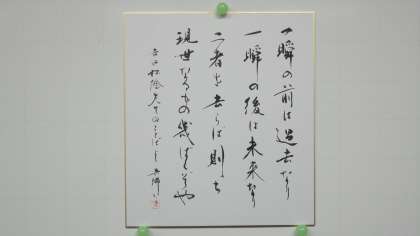 一瞬の前は過去なり
一瞬の後は未来なり
二者を去らば則ち
現世なるもの幾ばくぞや
吉田松陰先生のことばより